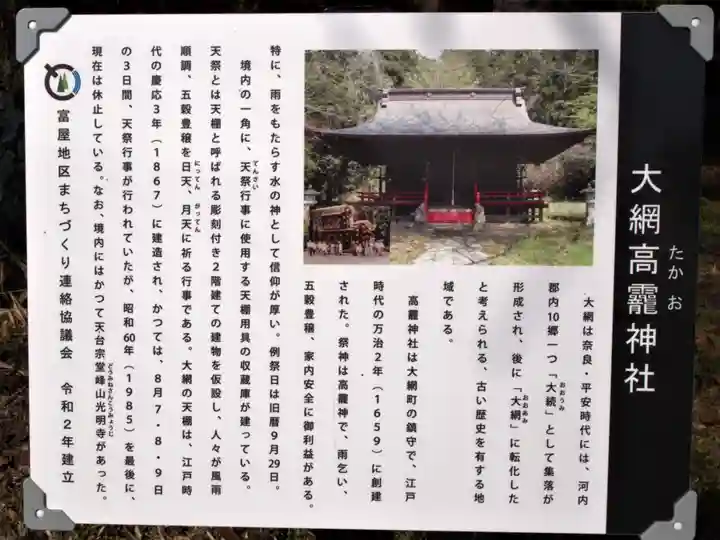 大網高龗神社
たかお
大網は奈良・平安時代には、河内
郡内10郷一つ「大続」として集落が
おおうみ
形成され、後に「大網」に転化した
おおあみ
と考えられる、古い歴史を有する地
域である。
高龗神社は大網町の鎮守で、江戸
時代の万治2年(1659)に創建
された。祭神は高龗神で、雨乞い、
五穀豊穣、家内安全に御利益がある。
特に、雨をもたらす水の神として信仰が厚い。例祭日は旧暦9月29日。
境内の一角に、天祭行事に使用する天棚用具の収蔵庫が建っている。
てんさい
天祭とは天棚と呼ばれる彫刻付き2階建ての建物を仮設し、人々が風雨
順調、五穀豊穣を日天、月天に祈る行事である。大網の天棚は、江戸時
にってん がってん
代の慶応3年(1867)に建造され、かつては、8月7・8・9日
の3日間、天祭行事が行われていたが、昭和60年(1985)を最後に、
現在は休止している。なお、境内にはかつて天台宗堂峰山光明寺があった。
どうみねさんこうみょうじ
富屋地区まちづくり連絡協議会 令和2年建立